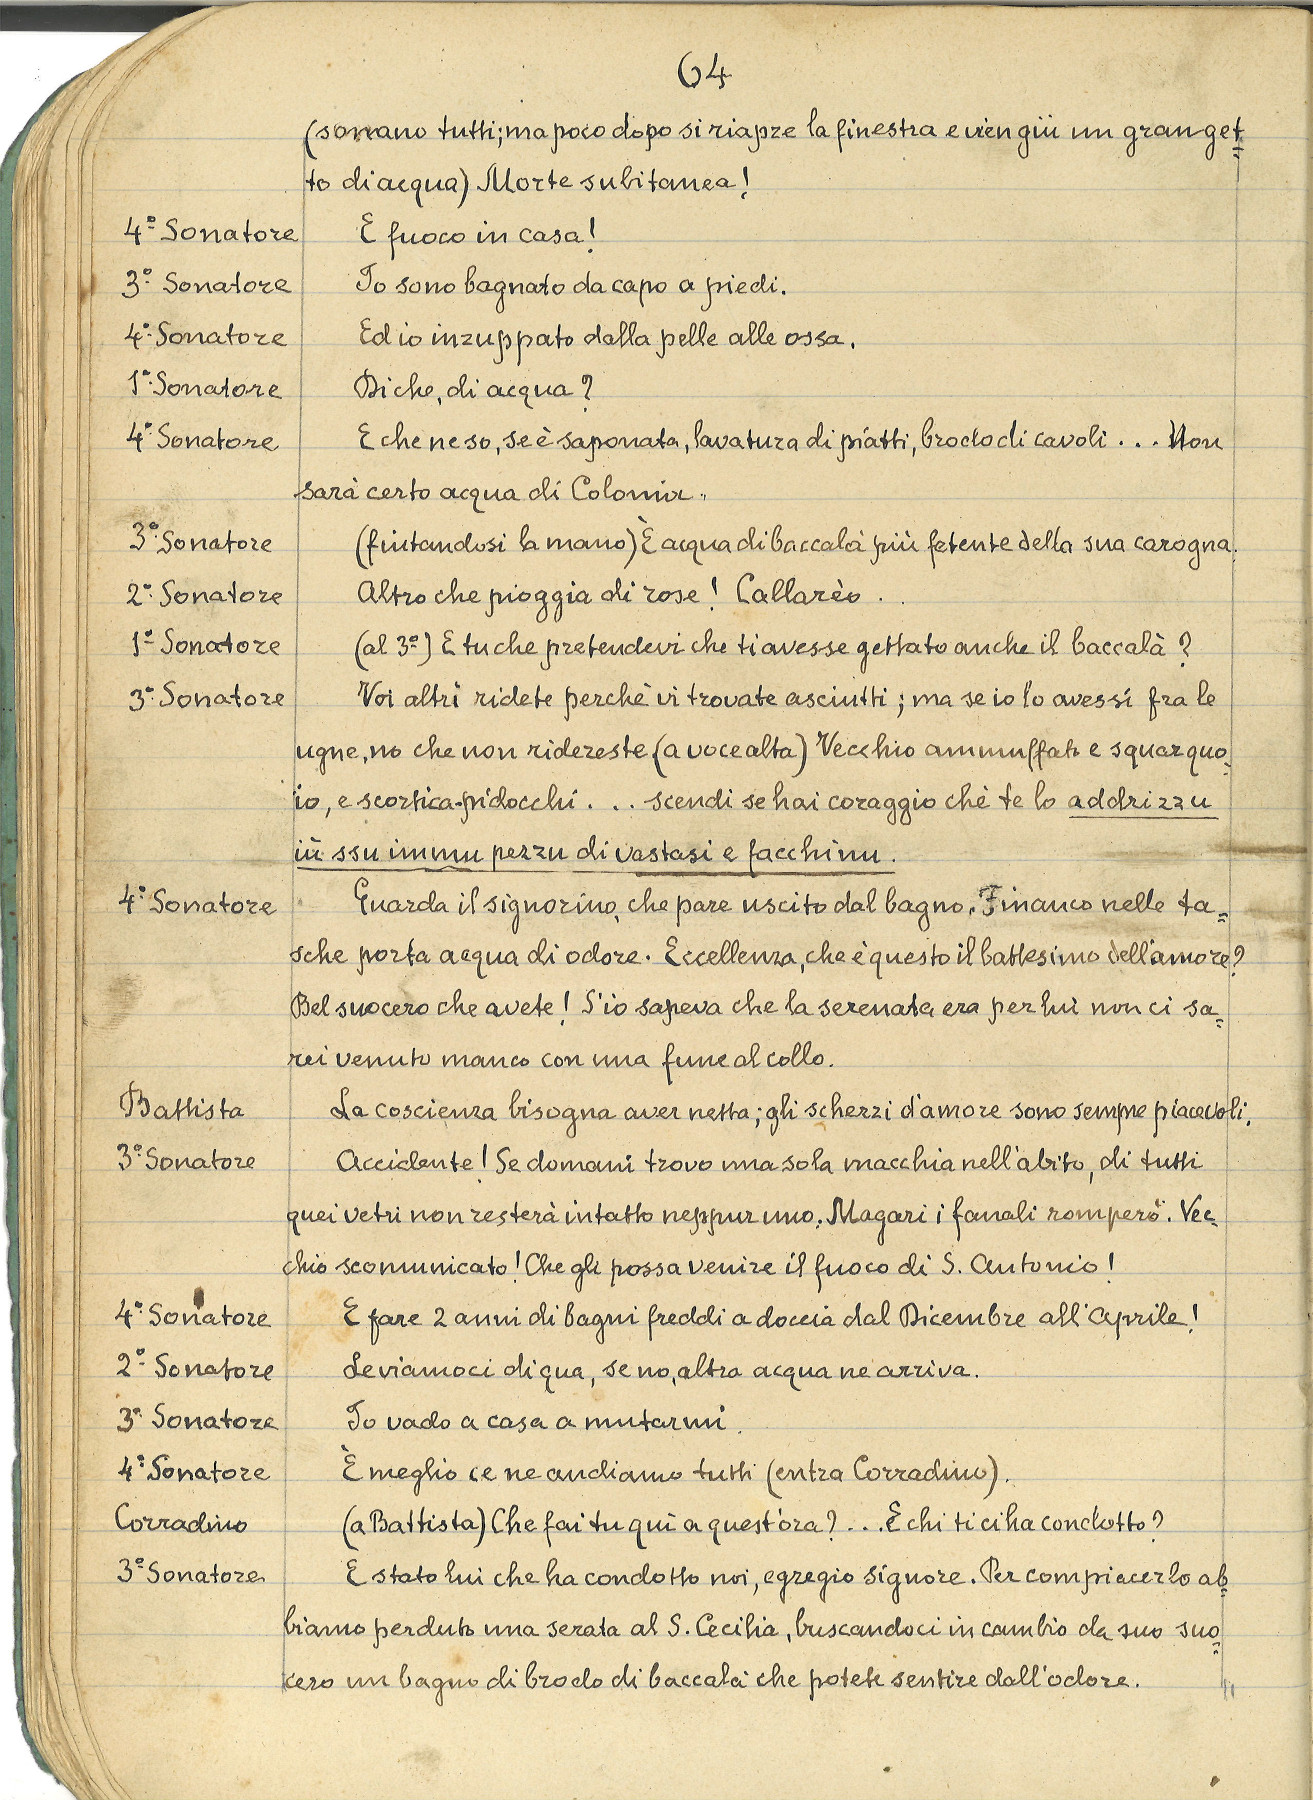 64
(sonano tutti; ma poco dopo si riapre la finestra e vien giù un gran get=
to di acqua) Morte subitanea!
4º Sonatore E fuoco in casa!
3º Sonatore Io sono bagnato da capo a piedi.
4º Sonatore Ed io inzuppato dalla pelle alle ossa.
1º Sonatore Di che, di acqua?
4º Sonatore E che ne so, se è saponata, lavatura di piatti, brodo di cavoli . . . Non
sarà certo acqua di Colonia.
3º Sonatore (fiutandosi la mano) È acqua di baccalà più fetente della sua carogna.
2º Sonatore Altro che pioggia di rose! Callarèo . .
1º Sonatore (al 3º) E tu che pretendevi che ti avesse gettato anche il baccalà?
3º Sonatore Voi altri ridete perchè vi trovate asciutti; ma se io lo avessi fra le
ugne, no che non ridereste (a voce alta) Vecchio ammuffato e squarquo=
io, e scortica-pidocchi . . . scendi se hai coraggio chè te lo addrizzu
iü ssu immu pezzu di vastasi e facchinu.
4º Sonatore Guarda il signorino, che pare uscito dal bagno. Financo nelle ta=
sche porta acqua di odore. Eccellenza, che è questo il battesimo dell'amore?
Bel suocero che avete! S'io sapeva che la serenata era per lui non ci sa=
rei venuto manco con una fune al collo.
Battista La coscienza bisogna aver netta; gli scherzi d'amore sono sempre piacevoli.
3º Sonatore Accidente! Se domani trovo una sola macchia nell'abito, di tutti
quei vetri non resterà intatto neppur uno. Magari i fanali romperò. Vec=
chio scomunicato! Che gli possa venire il fuoco di S. Antonio!
4º Sonatore E fare 2 anni di bagni freddi a doccia dal Dicembre all'Aprile!
2º Sonatore Leviamoci di qua, se no, altra acqua ne arriva.
3º Sonatore Io vado a casa a mutarmi.
4º Sonatore È meglio ce ne andiamo tutti (entra Corradino).
Corradino (a Battista) Che fai tu qui a quest'ora? . . . E chi ti ci ha condotto?
3º Sonatore E stato lui che ha condotto noi, egregio signore. Per compiacerlo ab=
biamo perduto una serata al S. Cecilia, buscandoci in cambio da suo suo=
cero un bagno di brodo di baccalà che potete sentire dall'odore.